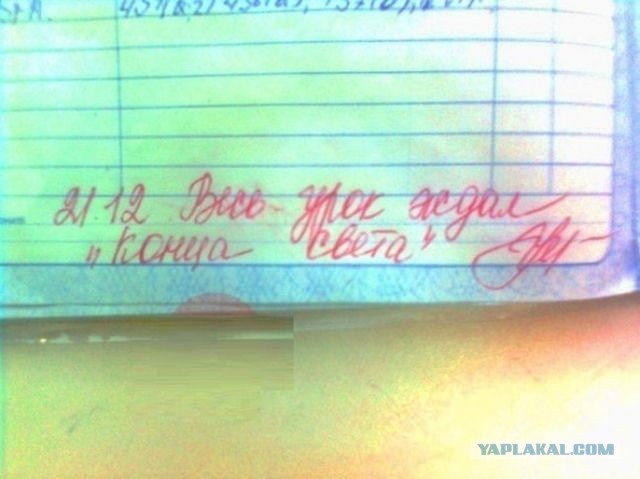 21.12 Весь урок ждал
"Конца света"
YAPLAKAL.COM